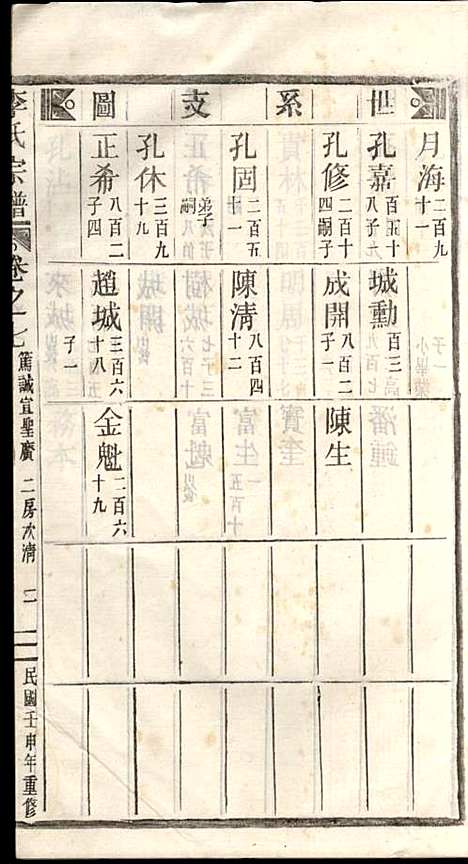 世系支圖
月海 二百九十一
孔嘉 八百五十八子九
孔修 二百十四嗣子
孔固 二百五十一 弟子嗣
孔休 三百九十九
正希 八百二子四
城勳 百三
成開 八百二子一
陳清 八百四十二
趙城 三百六十八子一
陳生
金魁 二百六十九
李氏宗譜
卷之七
篤誠宜聖廣 二房次清 二
民國壬申年重修